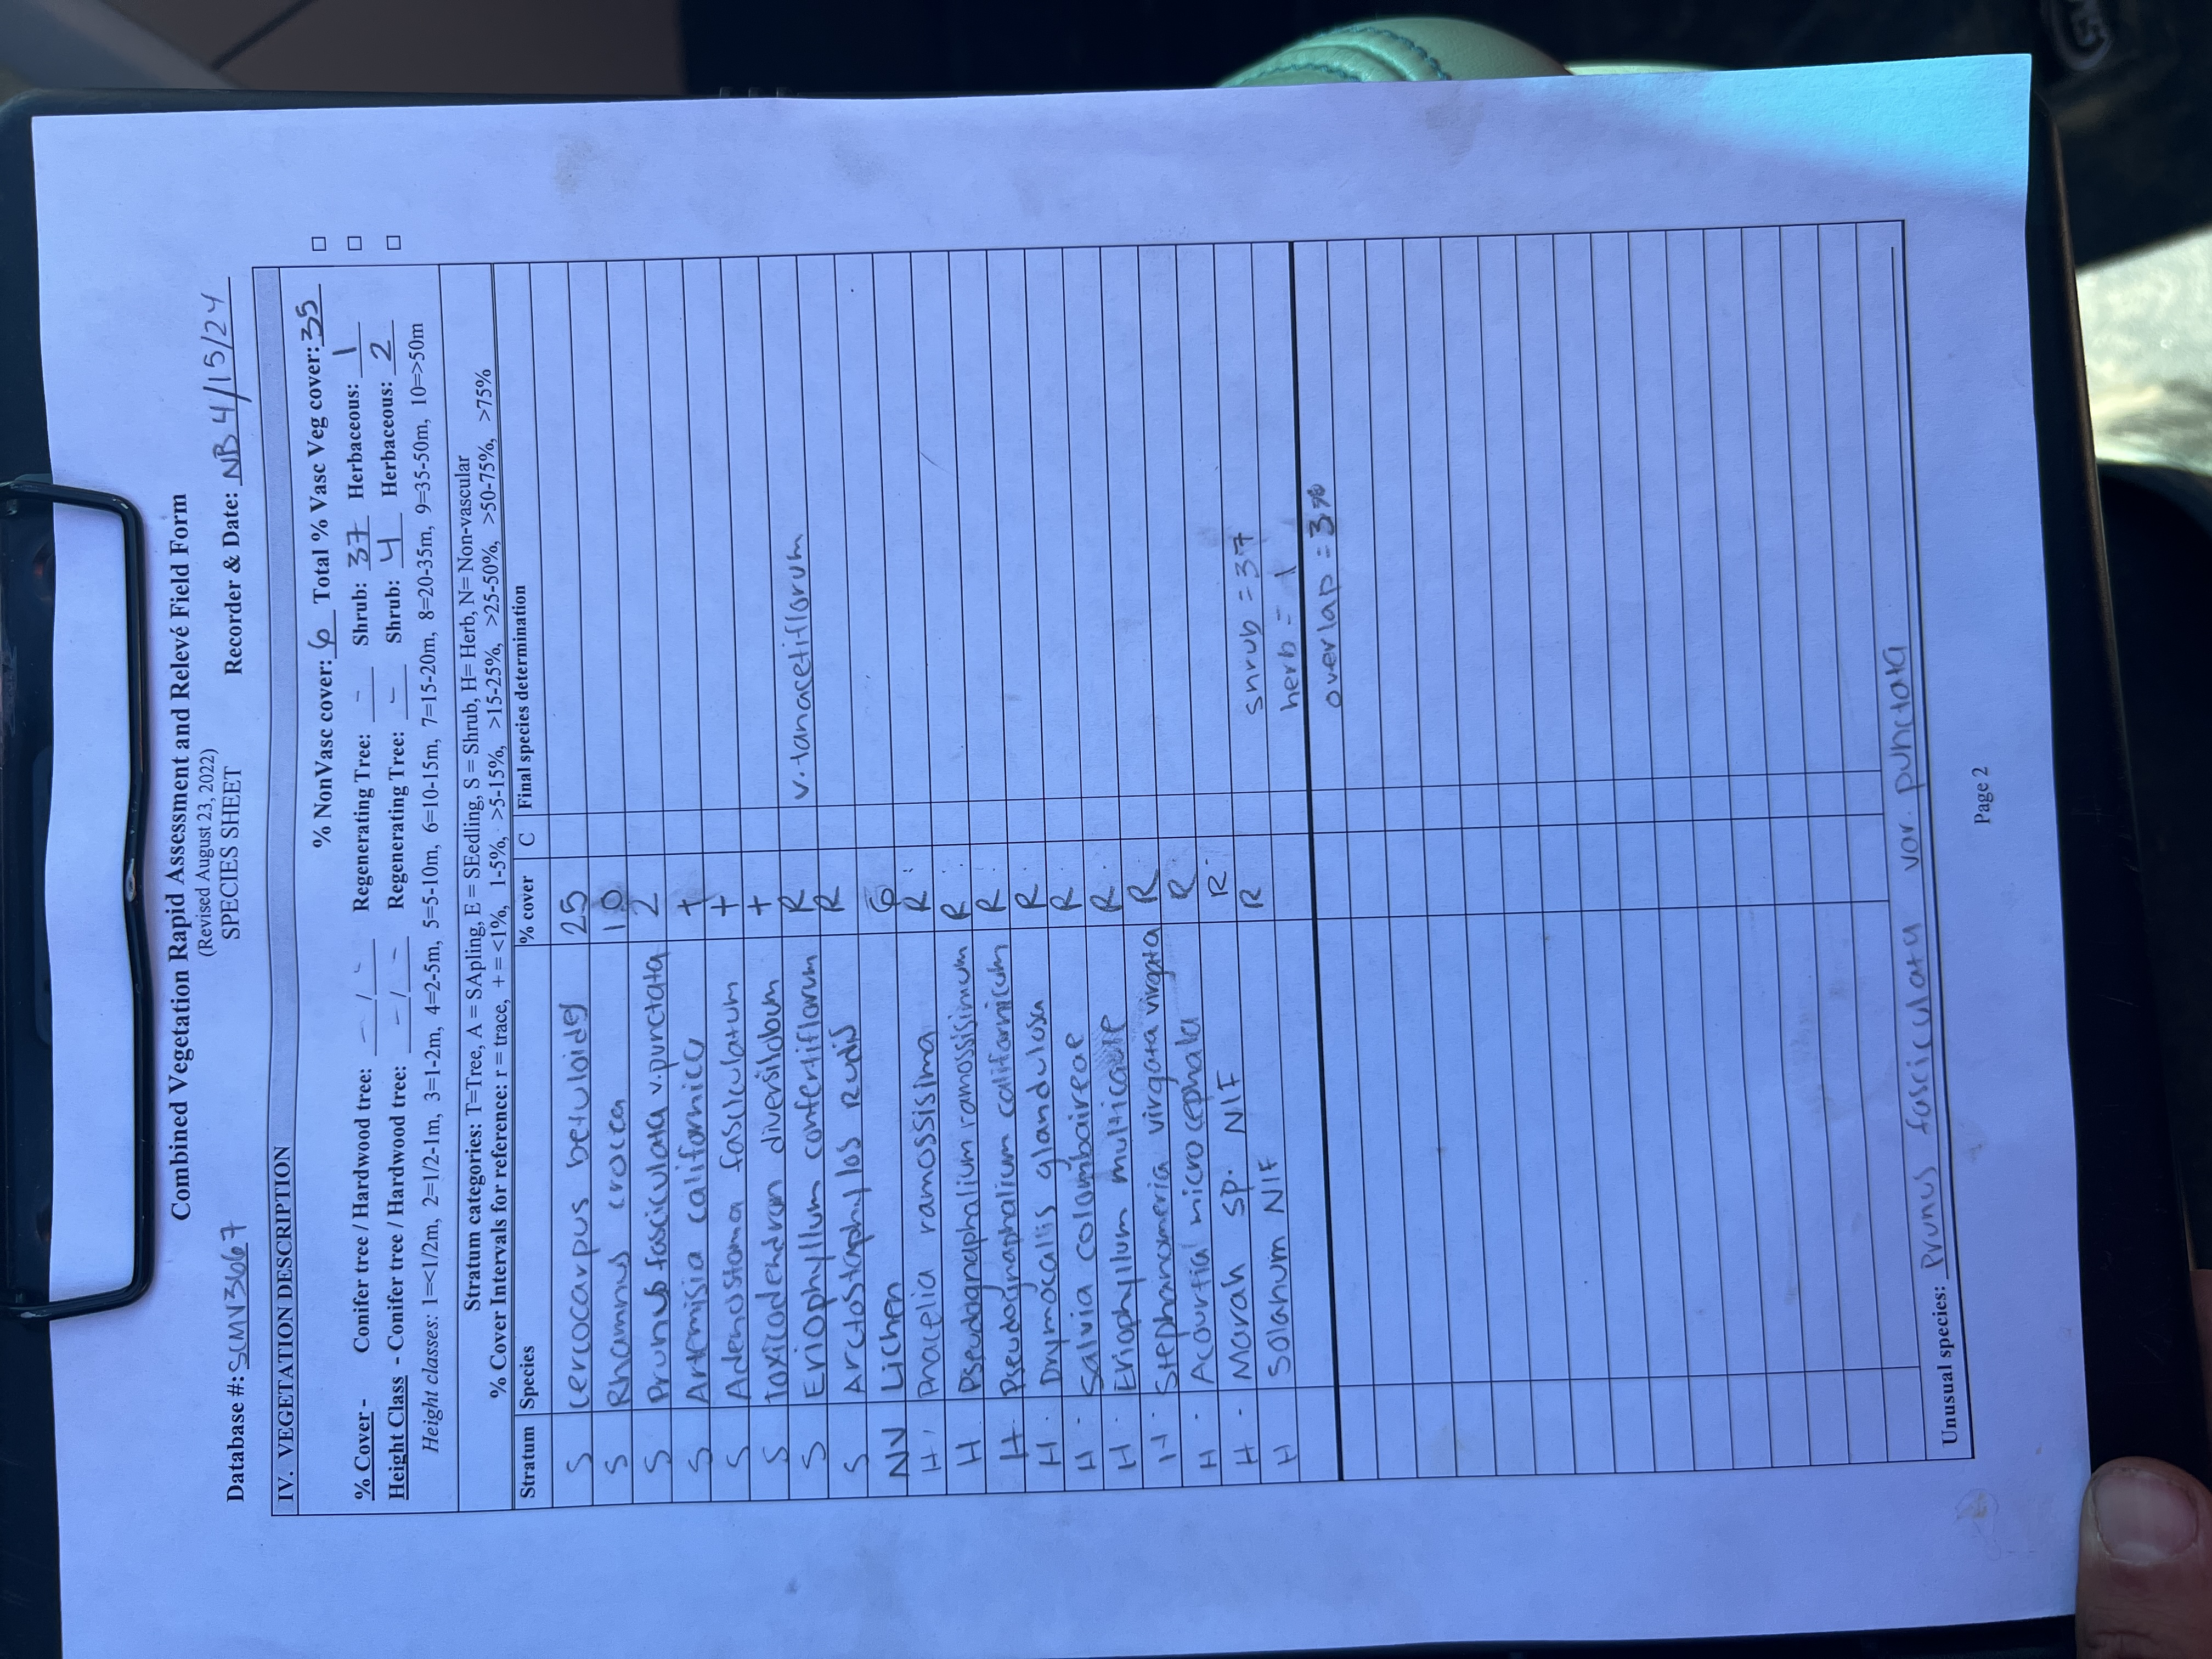 Combined Vegetation Rapid Assessment and Relevé Field Form
(Revised August 23, 2022)
SPECIES SHEET
Database #: SCMV3667 Recorder & Date: NB 4/15/24
IV. VEGETATION DESCRIPTION
% NonVasc cover: 6 Total % Vasc Veg cover: 35 □
% Cover - Conifer tree / Hardwood tree: - / - Regenerating Tree: - Shrub: 37 Herbaceous: 1 □
Height Class - Conifer tree / Hardwood tree: - / - Regenerating Tree: - Shrub: 4 Herbaceous: 2 □
Height classes: 1=<1/2m, 2=1/2-1m, 3=1-2m, 4=2-5m, 5=5-10m, 6=10-15m, 7=15-20m, 8=20-35m, 9=35-50m, 10=>50m
Stratum categories: T=Tree, A = SApling, E = SEedling, S = Shrub, H= Herb, N= Non-vascular
% Cover Intervals for reference: r = trace, + = <1%, 1-5%, >5-15%, >15-25%, >25-50%, >50-75%, >75%
Stratum Species % cover C Final species determination
S Cercocarpus betuloides 25
S Rhamnus crocea 10
S Prunus fasciculata v. punctata 2
S Artemisia californica +
S Adenostoma fasciculatum +
S Toxicodendron diversilobum +
S Eriophyllum confertiflorum R v. tanacetiflorum
S Arctostaphylos Rudis R
NV Lichen 6
H Phacelia ramosissima R
H Pseudognaphalium ramossisimum R
H Pseudognaphalium californicum R
H Drymocalis glandulosa R
H Salvia colombaireae R
H Eriophyllum multicaule R
H Stephanomeria virgata virgata R
H Acourtia microcephala R
H Marah sp. NIF R
H Solanum NIF R
shrub = 37
herb = 1
overlap = 3%
Unusual species: Prunus fasciculata var. punctata
Page 2